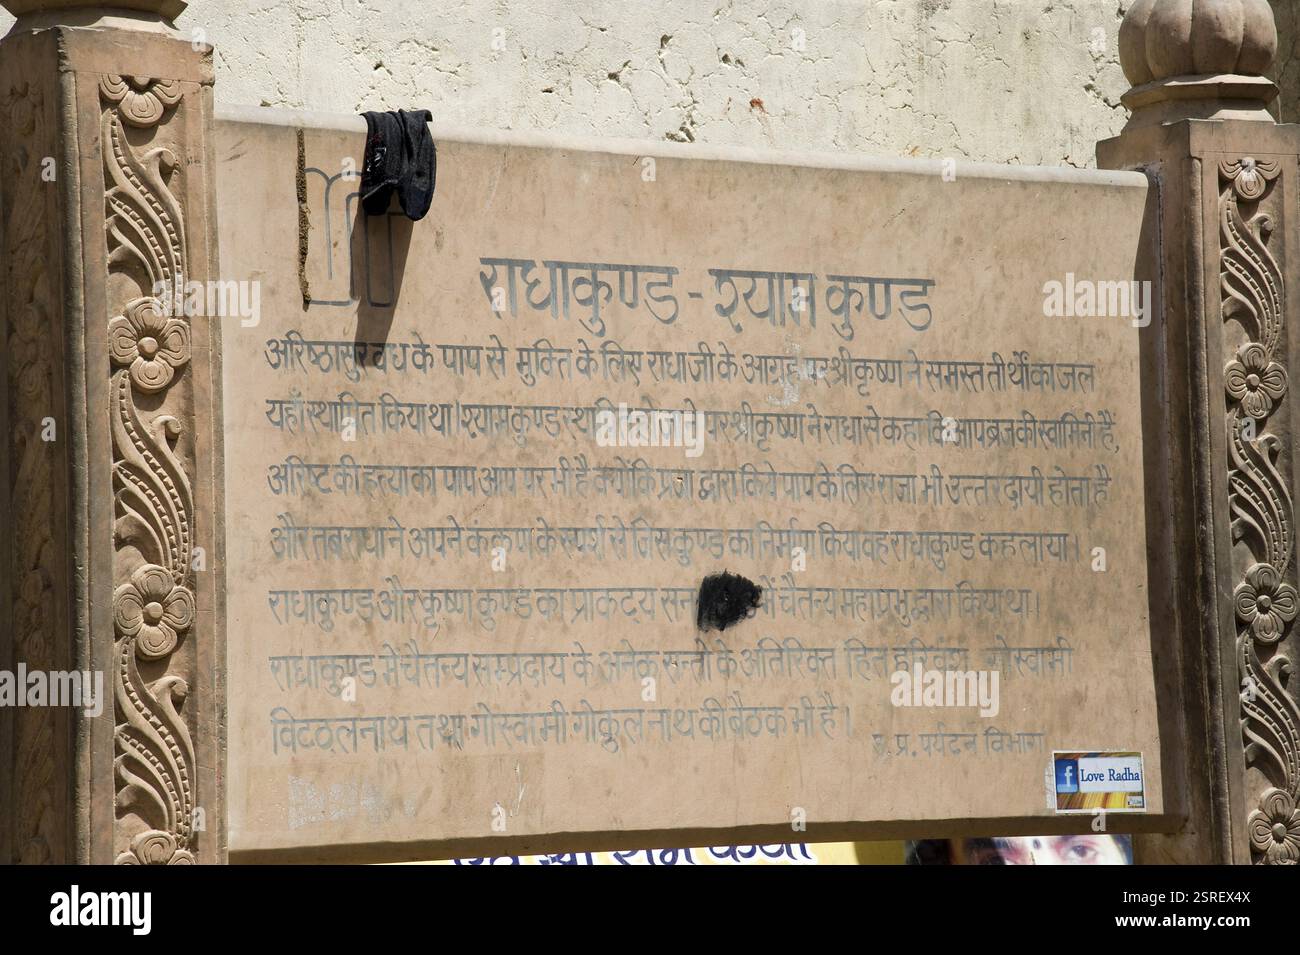 राधाकुण्ड - श्याम कुण्ड
अरिष्ठासुर वध के पाप से मुक्ति के लिए राधाजी के आग्रह पर श्रीकृष्ण ने समस्त तीर्थों का जल
यहाँ स्थापित किया था। श्याम कुण्ड स्थापित हो जाने पर श्रीकृष्ण ने राधा से कहा कि आप ब्रज की स्वामिनी हैं,
अरिष्ट की हत्या का पाप आप पर भी है क्योंकि प्रजा द्वारा किये पाप के लिए राजा भी उत्तरदायी होता है
और तब राधा ने अपने कंकण के स्पर्श से जिस कुण्ड का निर्माण किया वह राधाकुण्ड कहलाया।
राधाकुण्ड और कृष्ण कुण्ड का प्राकट्य सन में चैतन्य महाप्रभु द्वारा किया था।
राधाकुण्ड में चैतन्य सम्प्रदाय के अनेक सन्तों के अतिरिक्त हित हरिवंश गोस्वामी
विट्ठलनाथ तथा गोस्वामी गोकुलनाथ की बैठक भी है।
उ. प्र. पर्यटन विभाग
f Love Radha
alamy
Image ID: 2SREX4X
www.alamy.com